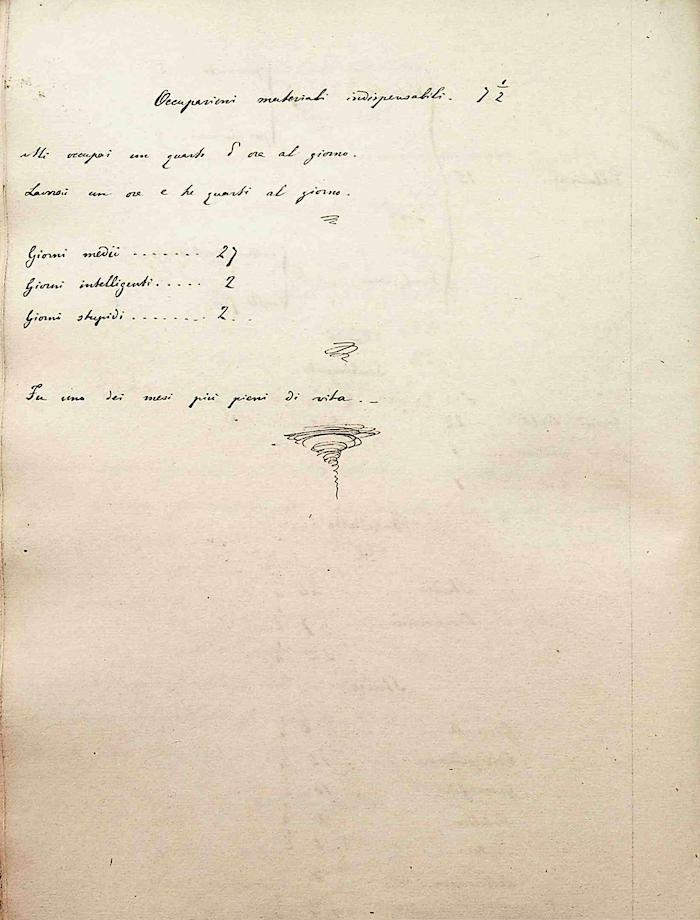 Occupazioni materiali indispensabili. 7 1/2
Mi occupai un quarto d'ora al giorno.
Lavorai un ora e tre quarti al giorno.
Giorni medii ....... 27
Giorni intelligenti..... 2
Giorni stupidi ........ 2..
Fu uno dei mesi più pieni di vita.—